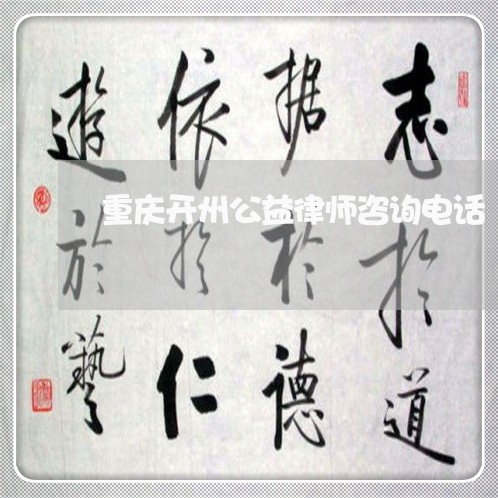 志於道
据於德
依於仁
遊於藝
重庆开州公益律师咨询电话